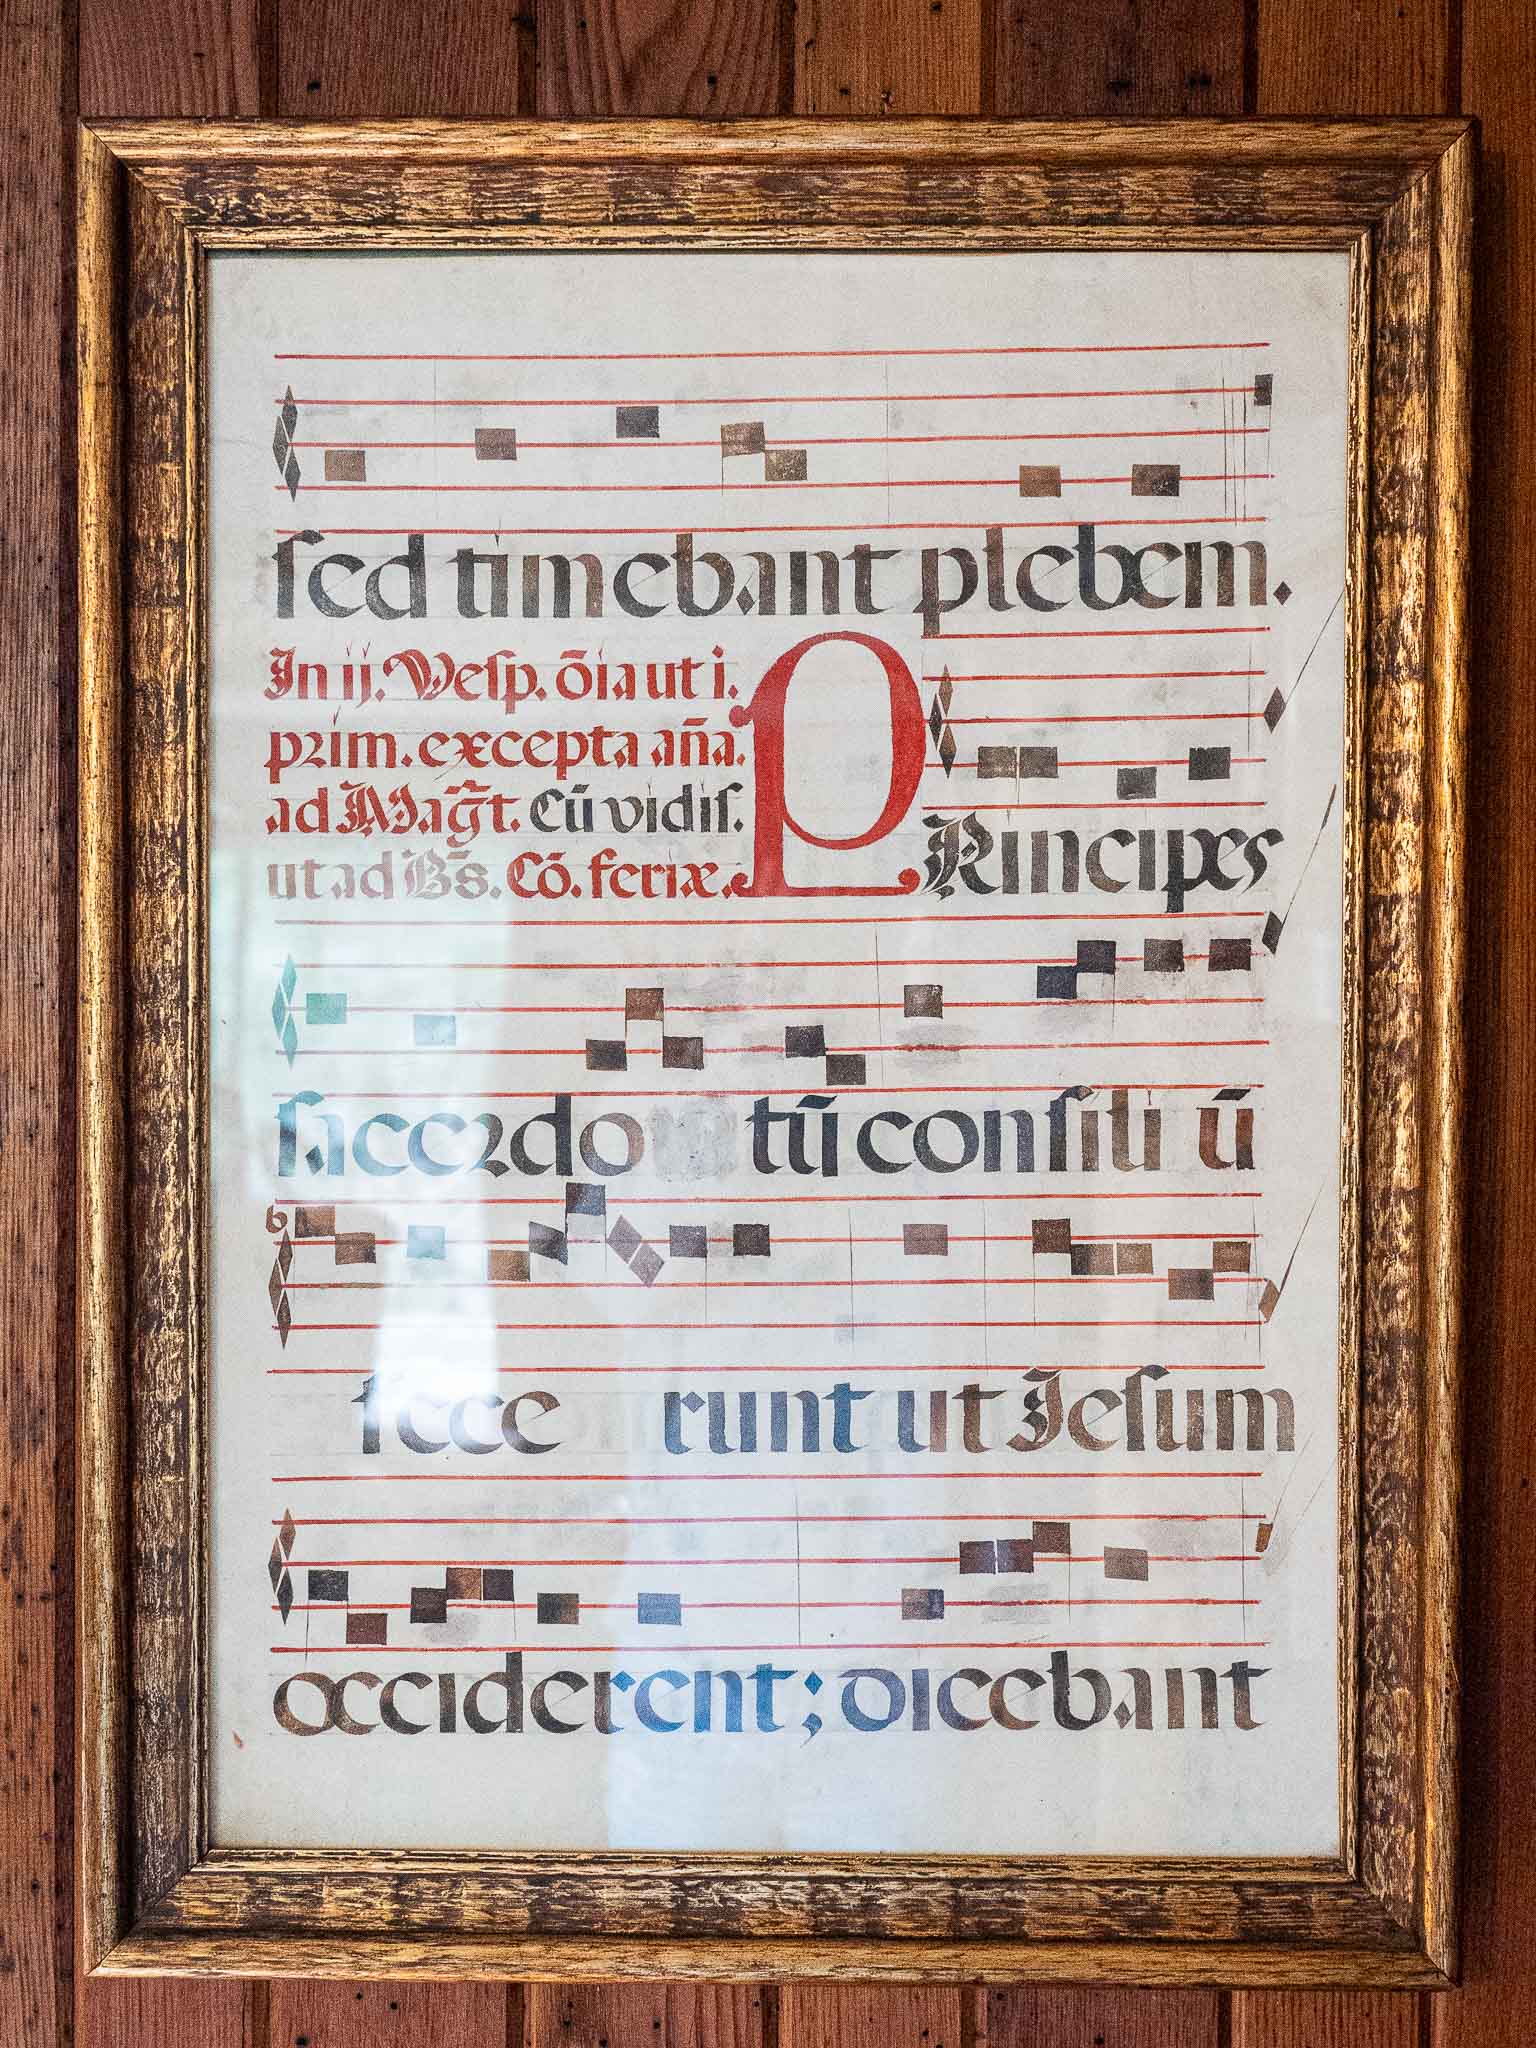 sed timebant plebem.
In ij. Vesp. õia ut i.
prim. excepta aña.
ad Magt̃. Cũ vidis.
ut ad B̃s. Cõ. feriæ.
PRincipes
sacerdo tũ consili ũ
fece runt ut Jesum
occiderent; dicebant